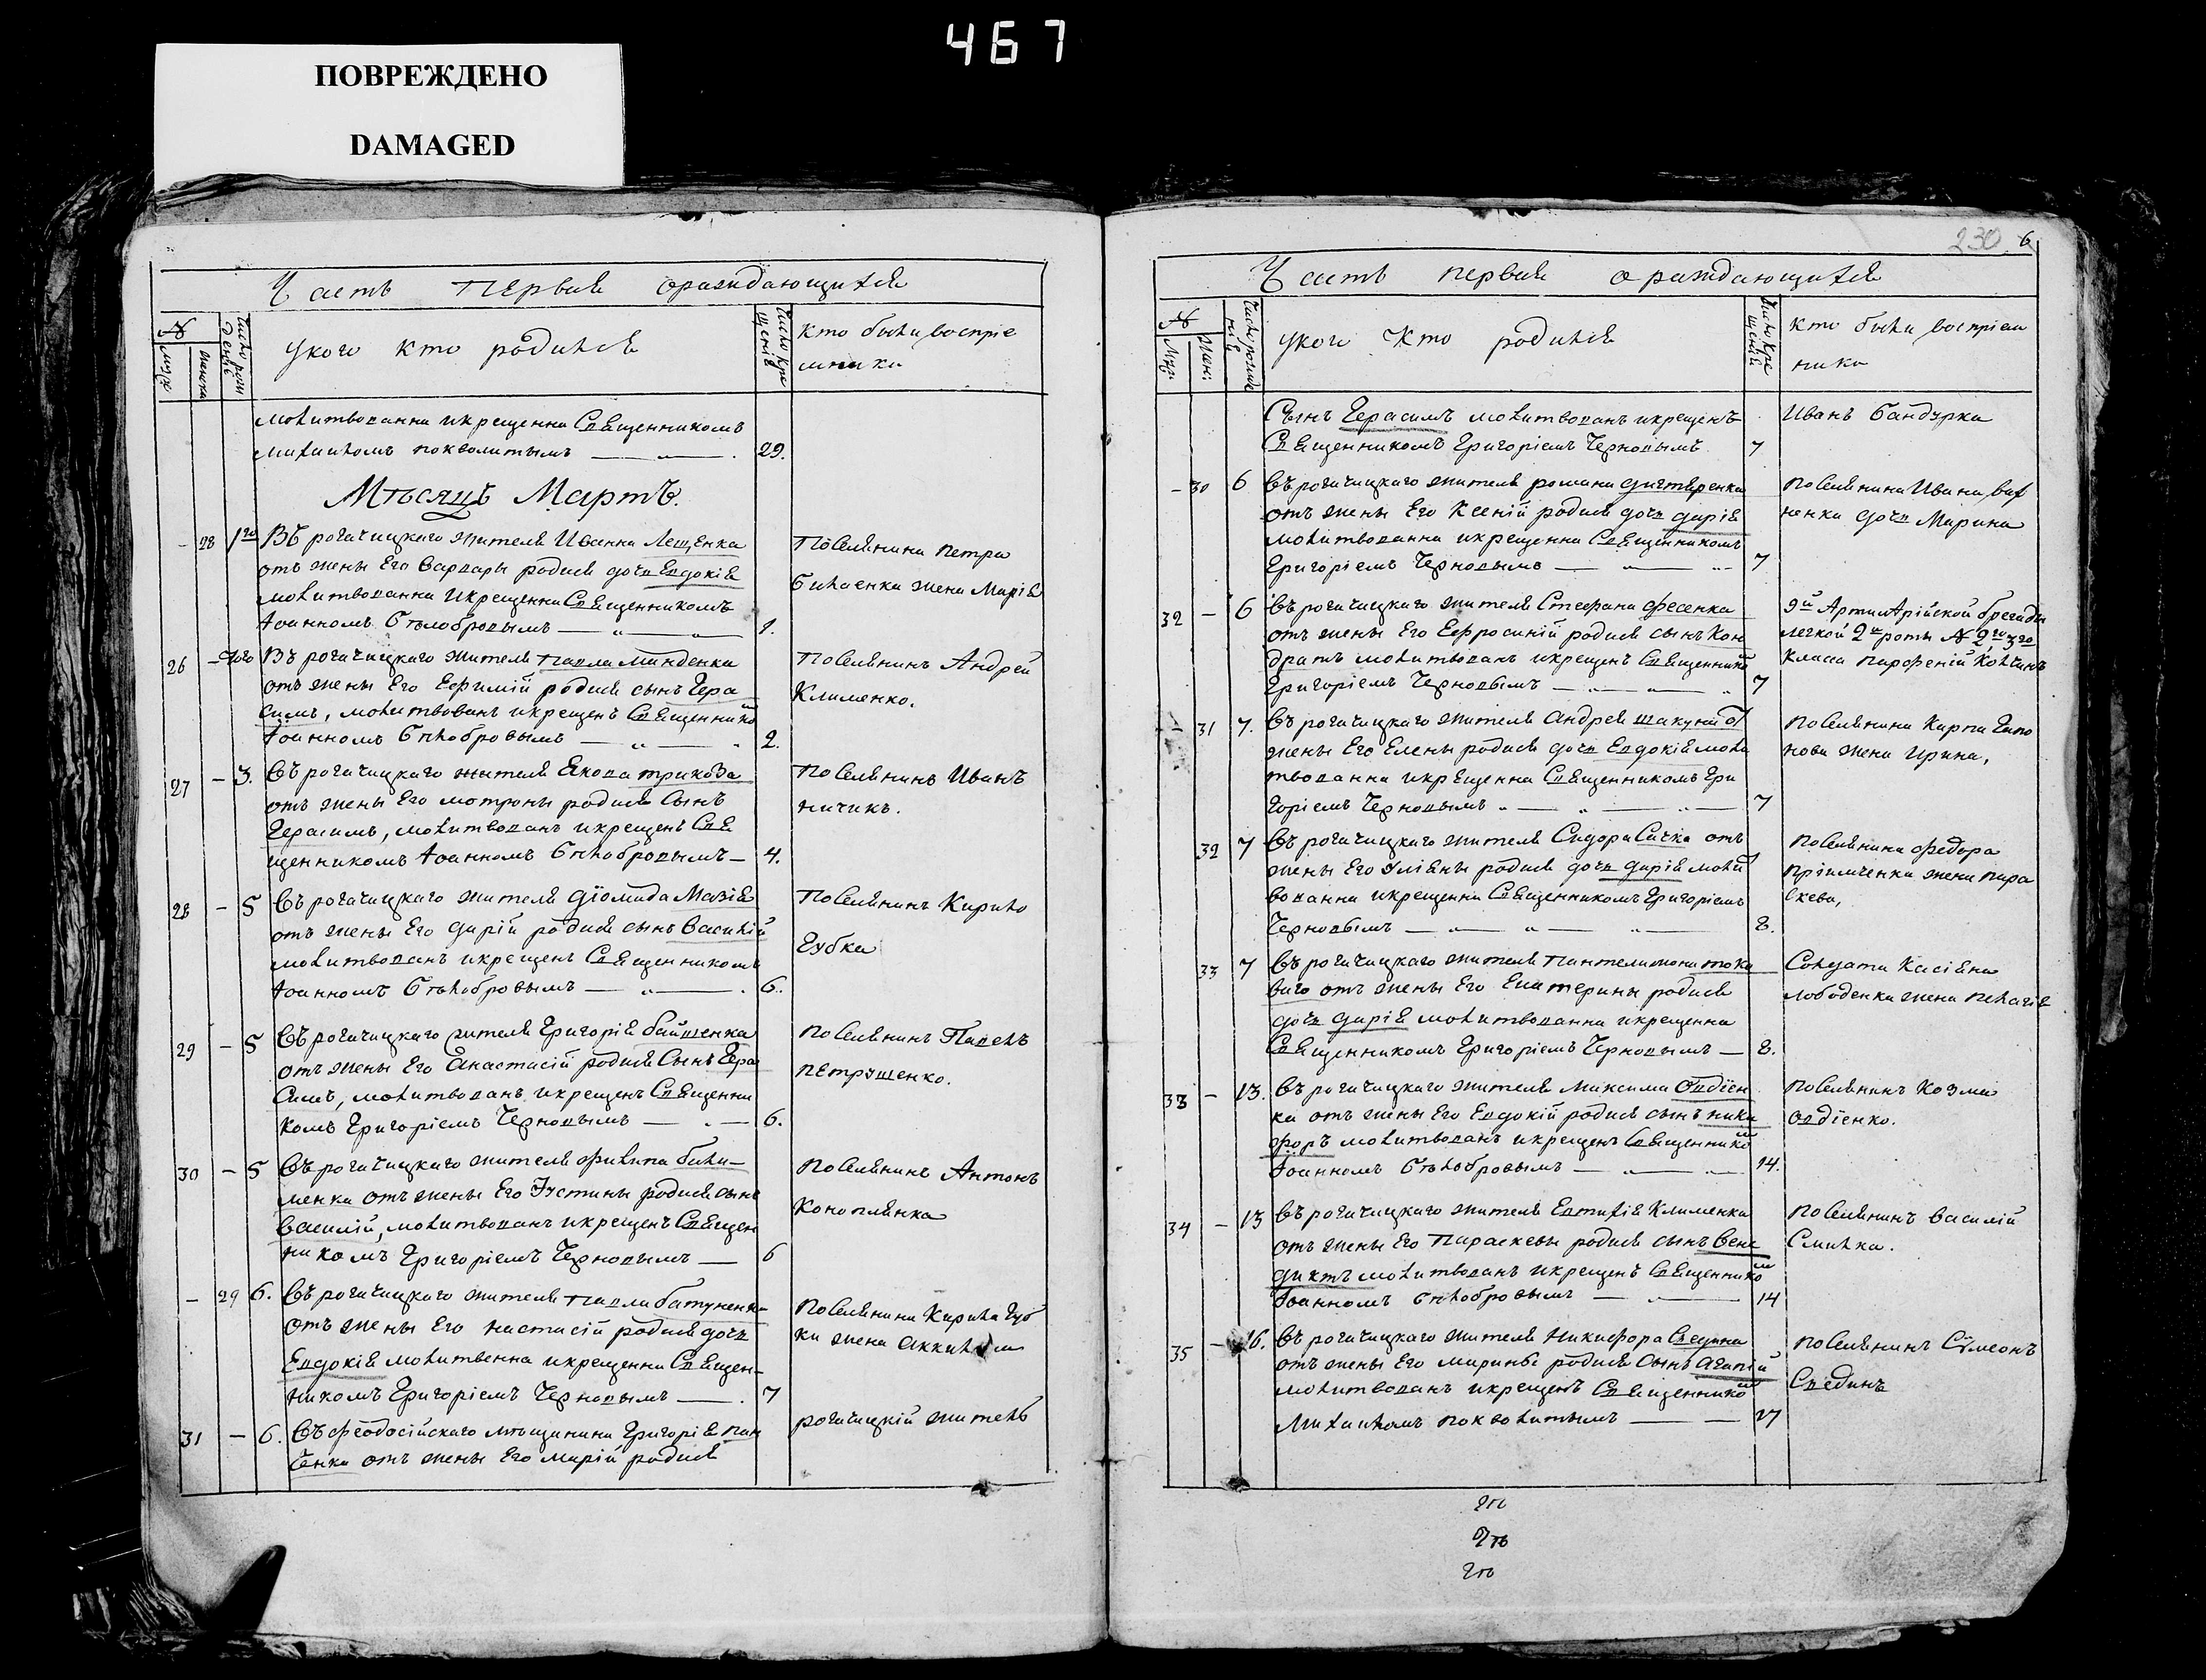 467
ПОВРЕЖДЕНО
DAMAGED
Часть Первая ораждающихся
№
муж:
женка
Число рож
денія
укого кто родился
Число кре
щенія
Кто были воспріе
мники
молитвованна икрещенна Священникомъ
Михаиломъ поквалитымъ — „ — . 29.
Мѣсяцъ Мартъ.
– 28 1го Въ рогачицкаго жителя Иванна Лещенка
отъ жены Его Варвары родися дочь Евдокія
молитвованна икрещенна Священникомъ
Іоанномъ Бѣлобровымъ — „ — „ — 1.
Поселянина петра
Билаенка жена Марія
26 – Въ рогачицкаго жителя Павла Минденка
отъ жены Его Ефимій родися сынъ Гера
симъ, молитвованъ икрещенъ Священнико
Іоанномъ Бѣлобровымъ — „ — „ 2.
Поселянинъ Андрей
Клименко.
27 – 3. Въ рогачицкаго жителя Якова трикоза
отъ жены Его мотроны родися Сынъ
Герасимъ, молитвованъ икрещенъ Свя
щенникомъ Іоанномъ Бѣлобровымъ — 4.
Поселянинъ Иванъ
ничикъ.
28 – 5 Въ рогачицкаго жителя Діомида Мазія
отъ жены Его Дарій родися сынъ Василій
молитвованъ икрещенъ Священникомъ
Іоанномъ Бѣлобровымъ — „ — . 6.
Поселянинъ Кирило
Губка
29 – 5 Въ рогачицкаго жителя Григорія байшенка
отъ жены Его Анастасій родися Сынъ Гера
Симъ, молитвованъ икрещенъ Священни
комъ Григоріемъ Черновымъ — . — 6.
Поселянинъ Павелъ
петрушенко.
30 – 5 Въ рогачицкаго жителя филипа били–
менка отъ жены Его Іустины родися сынъ
Василій, молитвованъ икрещенъ Священ
никомъ Григоріемъ Черновымъ — 6
Поселянинъ Антонъ
Коноплянка
– 29 6. Въ рогачицкаго жителя Павла батуненк–
отъ жены Его настасій родися дочь
Евдокія молитвенна икрещенна Священ–
никомъ Григоріемъ Черновымъ — . 7
Поселянина Кирила Губ
ки жена
31 – 6. Въ феодосійскаго мѣщанина Григорія пан
ченка отъ жены Его Марій родися
рогачицкій житель
230 6
Часть первая ораждающихся
№
Муж:
жен:
Число рожде
нія
укого Кто родился
Число Кре
щенія
кто были воспріем
ника
Сынъ Герасимъ молитвованъ икрещенъ
Священникомъ Григоріемъ Черновымъ 7
Иванъ бандурка
– 30 6 Въ рогачицкаго жителя романа дигтяренка
отъ жены Его Ксеній родися дочь Дарія
молитвованна икрещенна Священникомъ
Григоріемъ Черновымъ — „ — „ – 7
Поселянина Ивана вах
ненка дочь Марина
32 – 6 Въ рогачицкаго жителя Стефана фесенка
отъ жены Его Ефросиній родися сынъ Кон
дратъ молитвованъ икрещенъ Священнико
Григоріемъ Черновымъ — „ — „ 7
9й Артилерійской брегады
легкой 2й роты № 2го 3го
класса парофеній Колчинъ
– 31 7. Въ рогачицкаго жителя Андрея шакуна от
жены Его Елены родися дочь Евдокія моли
твованна икрещенна Священникомъ Гри
горіемъ Черновымъ „ — „ — „ — 7
Поселянина Карпа Гапо
нова жена Ирина,
32 7 Въ рогачицкаго жителя Сидора Сичка отъ
жены Его Уліяны родися дочь Дарія молит
вованна икрещенна Священникомъ Григоріемъ
Черновымъ — „ — „ — „ — 8.
Поселянина федора
Пріймченка жена пара
скева,
33 7 Въ рогачицкаго жителя Пантелимона тока
ваго отъ жены Его Екатерины родися
дочь Дарія молитвованна икрещенна
Священникомъ Григоріемъ Черновымъ — 8.
Солдата Касіяна
лободенка жена пелагія
33 – 13. Въ рогачицкаго жителя Максима Овдіен
ка отъ жены Его Евдокій родися сынъ ники
форъ молитвованъ икрещенъ Священнико
Іоанномъ Бѣлобровымъ — „ — „ — 14.
Поселянинъ Козма
Овдіенко.
34 – 13 Въ рогачицкаго жителя Евтихія Клименка
отъ жены Его Параскевы родися сынъ Вене
диктъ молитвованъ икрещенъ Священнико
Іоанномъ Бѣлобровымъ — „ — 14
Поселянинъ Василій
Смилка.
35 – 16. Въ рогачицкаго жителя Никифора Сведина
отъ жены Его Марины родися Сынъ Агапій
молитвованъ икрещенъ Священнико
Михаиломъ поквалитымъ — — 17
Поселянинъ Сѵмеонъ
Свединъ